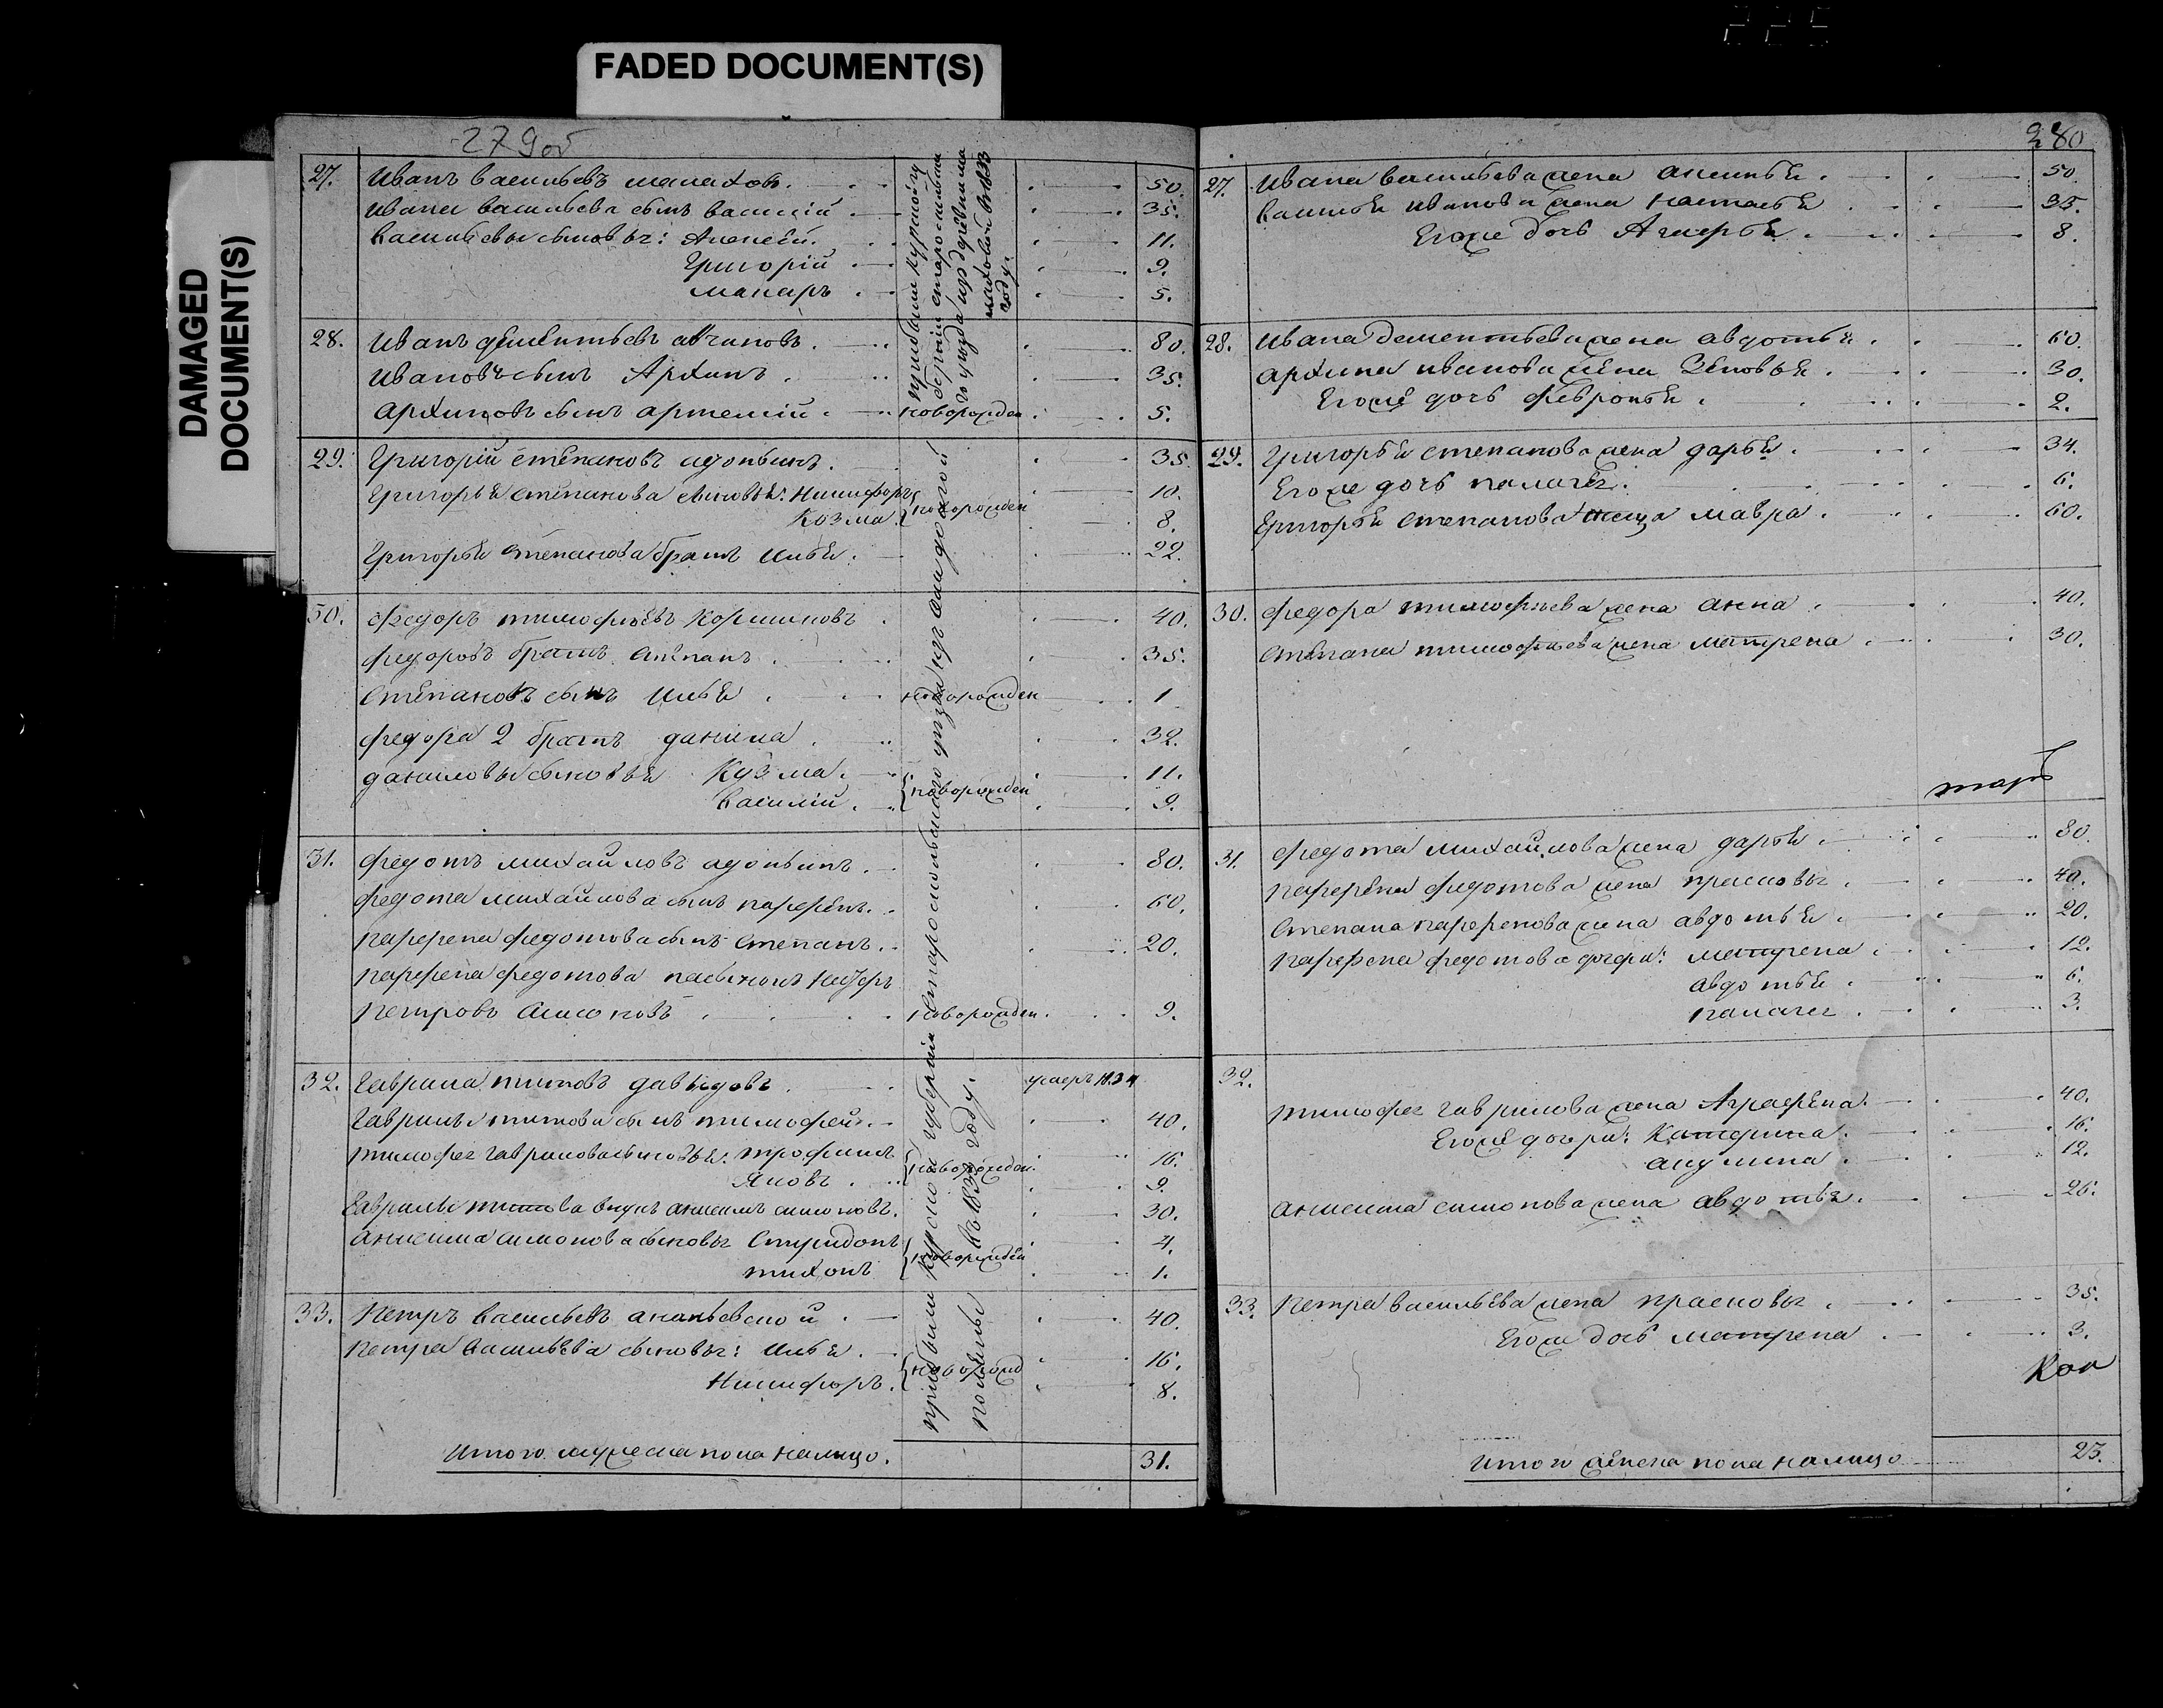 FADED DOCUMENT(S)
DAMAGED
DOCUMENT(S)
279об
27. Иванъ васильевъ малахов. 50.
Ивана васильева сынъ василий 35.
васильевы сыновья: Алексей. 11.
Григорій 9.
макаръ 5.
28. Иванъ дементьевъ 80.
Ивановъ сынъ Архипъ 35.
архиповъ сынъ артемий новорожден 5.
29. Григорій степановъ адоньинъ. 35
Григорья степанова сыновья: Никифоръ 10.
Козма новорожден 8.
Григорья степанова братъ илья. 22.
30. федоръ тимофѣевъ 40.
федоровъ братъ степанъ 35.
степановъ сынъ илья новорожден 1
федора 2 братъ данила 32.
даниловы сыновья Кузма 11.
василій новорожден 9.
31. федотъ михайловъ адоньинъ. 80.
федота михайлова сынъ парфенъ. 60.
парфена федотова сынъ степанъ. 20.
парфена федотова пасынокъ
петровъ новорожден. 9.
32. Гаврила титовъ давыдовъ умеръ 1834
Гаврилы титова сынъ тимофей 40.
тимофея гаврилова сыновья: трофимъ 16.
яковъ новорожден. 9.
Гаврилы титова внукъ анисимъ симоновъ. 30.
анисима симонова сыновья Спиридонъ 4.
тихонъ новорожден 1.
33. Петръ васильевъ ананьевской 40.
Петра васильева сыновья: илья 16.
Никифоръ. новорожд 8.
Итого мужеска пола налицо. 31.
прибыли Курской
губерніи старооскольска
го уезда изъ деревни ма
лаховой въ 1833
году.
прибыли Курской губерніи старооскольскаго уезда изъ
въ 183 году.
280
27. Ивана васильева жена аксинья 50
василья иванова жена настасья 35.
Егоже дочь 8.
28. Ивана дементьева жена авдотья 60.
архипа иванова жена Зеновья 30.
Егоже дочь февронья 2.
29. Григорья степанова жена дарья 34.
Егоже дочь палагея 6.
Григорья степанова мавра 60.
30. федора тимофѣева жена анна 40.
степана тимофѣева жена матрена 30.
31. федота михайлова жена дарья 80.
парфена федотова жена прасковья 40.
степана парфенова жена авдотья 20.
парфена федотова дочери: матрена 12.
авдотья 6.
палагея 3.
32.
тимофея гаврилова жена Аграфена 40.
Егоже дочери: Катерина 16.
акулина 12.
анисима симонова жена авдотья 26.
33. Петра васильева жена прасковья 35.
Егоже дочь матрена 3.
Итого женска пола налицо 23.